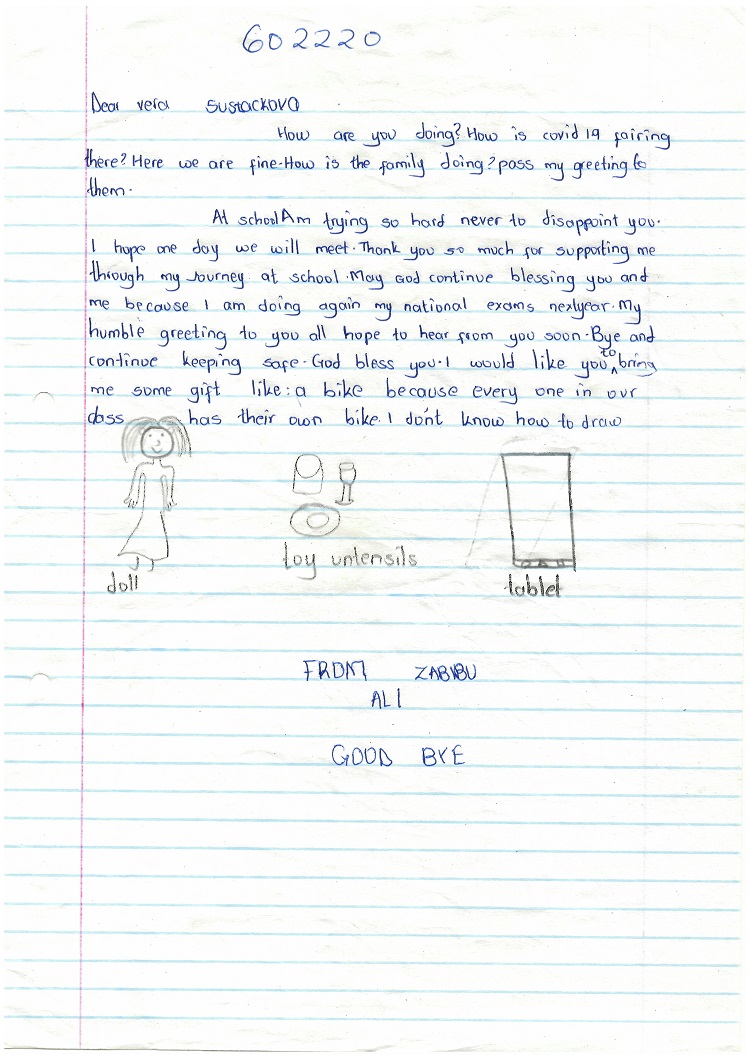 602220
Dear vera SUSTACKOVA
How are you doing? How is covid 19 fairing
there? Here we are fine. How is the family doing? pass my greeting to
them.
At school Am trying so hard never to disappoint you.
I hope one day we will meet. Thank you so much for supporting me
through my Journey at school. May God continue blessing you and
me because I am doing again my national exams nextyear. My
humble greeting to you all hope to hear from you soon. Bye and
continue keeping safe. God bless you. I would like you to bring
me some gift like: a bike because every one in our
class has their own bike. I don't know how to draw
doll toy untensils tablet
FROM ZABIBU
ALI
GOOD BYE